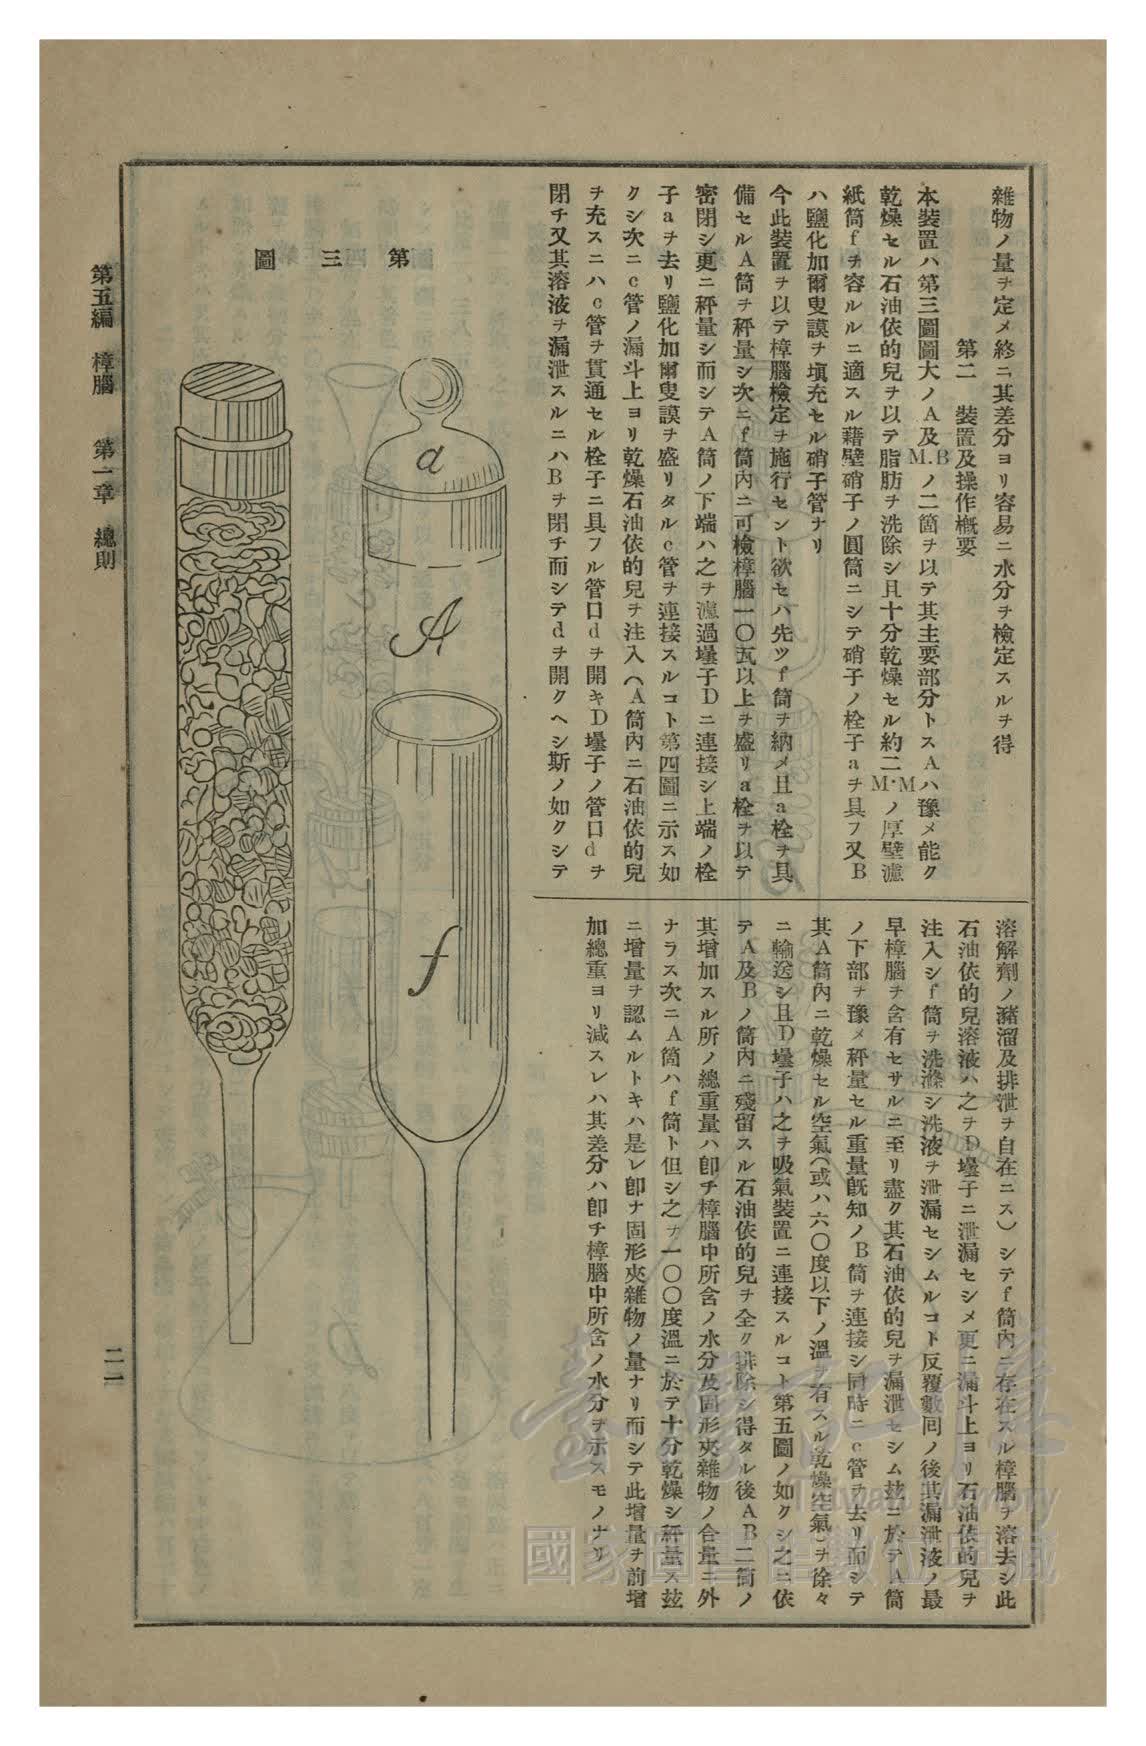 雜物ノ量ヲ定メ終ニ其差分ヨリ容易ニ水分ヲ檢定スルヲ得
第二　裝置及操作概要
本裝置ハ第三圖圖大ノA及M.Bノ二箇ヲ以テ其主要部分トスAハ豫メ能ク
乾燥セル石油依的兒ヲ以テ脂肪ヲ洗除シ且十分乾燥セル約二M.Mノ厚壁濾
紙筒fヲ容ルルニ適スル藉壁硝子ノ圓筒ニシテ硝子ノ栓子aヲ具フ又B
ハ鹽化加爾叟謨ヲ塡充セル硝子管ナリ
今此裝置ヲ以テ樟腦檢定ヲ施行セント欲セハ先ツf筒ヲ納メ且a栓ヲ具
備セルA筒ヲ秤量シ次ニf筒內ニ可檢樟腦一〇瓦以上ヲ盛リa栓ヲ以テ
密閉シ更ニ秤量シ而シテA筒ノ下端ハ之ヲ濾過壜子Dニ連接シ上端ノ栓
子aヲ去リ鹽化加爾叟謨ヲ盛リタルc管ヲ連接スルコト第四圖ニ示ス如
クシ次ニc管ノ漏斗上ヨリ乾燥石油依的兒ヲ注入(A筒內ニ石油依的兒
ヲ充スニハc管ヲ貫通セル栓子ニ具フル管口dヲ開キD壜子ノ管口dヲ
閉チ又其溶液ヲ漏泄スルニハBヲ閉チ而シテdヲ開クヘシ斯ノ如クシテ
溶解劑ノ瀦溜及排泄ヲ自在ニス)シテf筒內ニ存在スル樟腦ヲ溶去シ此
石油依的兒溶液ハ之ヲD壜子ニ泄漏セシメ更ニ漏斗上ヨリ石油依的兒ヲ
注入シf筒ヲ洗滌シ洗液ヲ泄漏セシムルコト反覆數回ノ後其漏泄液ノ最
早樟腦ヲ含有セサルニ至リ盡ク其石油依的兒ヲ漏泄セシム玆ニ於テA筒
ノ下部ヲ豫メ秤量セル重量既知ノB筒ヲ連接シ同時ニc管ヲ去リ而シテ
其A筒內ニ乾燥セル空氣(或ハ六〇度以下ノ溫ヲ有スル乾燥空氣)ヲ徐々
ニ輸送シ且D壜子ハ之ヲ吸氣裝置ニ連接スルコト第五圖ノ如クシ之ニ依
テA及Bノ筒內ニ殘留スル石油依的兒ヲ全ク排除シ得タル後AB二筒ノ
其增加スル所ノ總重量ハ卽チ樟腦中所含ノ水分及固形夾雜物ノ合量ニ外
ナラス次ニA筒ハf筒ト但シ之ヲ一〇〇度溫ニ於テ十分乾燥シ秤量ス玆
ニ增量ヲ認ムルトキハ是レ卽ナ固形夾雜物ノ量ナリ而シテ此增量ヲ前增
加總重ヨリ減スレハ其差分ハ卽チ樟腦中所含ノ水分ヲ示スモノナリ
第三圖
a
A
f
第五編　樟腦　第一章　總則
二一
臺灣記憶
Taiwan Memory
國家圖書館數位典藏